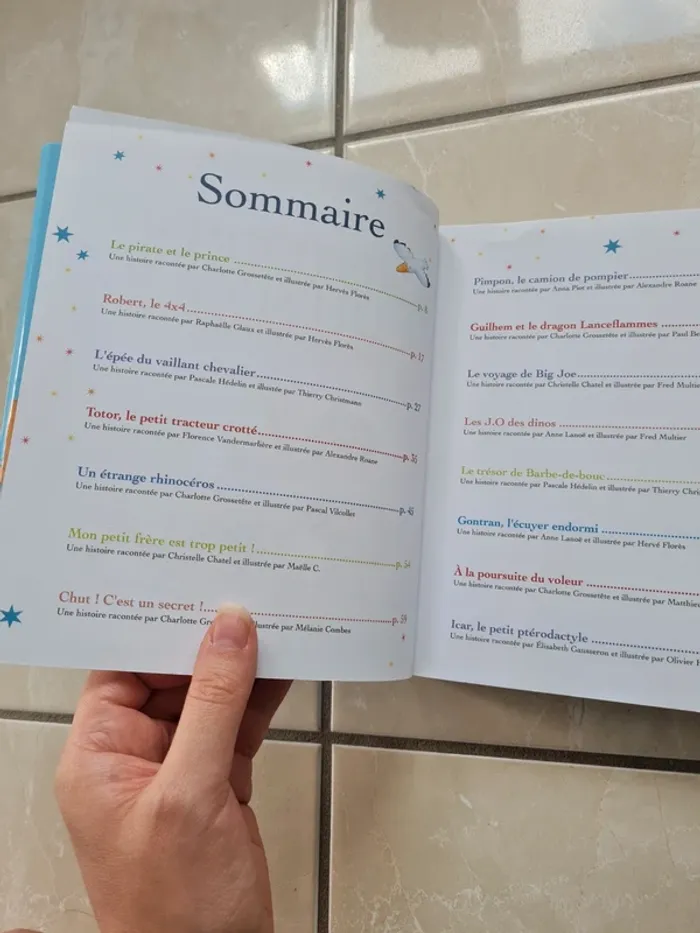 Sommaire
Le pirate et le prince
Une histoire racontée par Charlotte Grossetête et illustrée par Hervés Florès
Robert, le 4x4 p. 17
Une histoire racontée par Raphaëlle Glaux et illustrée par Hervés Florès
L'épée du vaillant chevalier p. 27
Une histoire racontée par Pascale Hédelin et illustée par Thierry Christmann
Totor, le petit tracteur crotté
Une histoire racontée par Florence Vandermarlière et illustrée par Alexandre Roane
Un étrange rhinocéros
Une histoire racontée par Charlotte Grossetête et illustrée par Pascal Vilcollet
Mon petit frère est trop petit !
Une histoire racontée par Christelle Chatel et illustrée par Maëlle C.
Chut ! C'est un secret ! p. 59
Une histoire racontée par Charlotte illustrée par Mélanie Combes
Pimpon, le camion de pompier
Une histoire racontée par Anna Piot et illustrée par Alexandre Roane
Guilhem et le dragon Lanceflammes
Une histoire racontée par Charlotte Grossetête et illustrée par Paul
Le voyage de Big Joe
Une histoire racontée par Christelle Chatel et illustrée par Fred
Les J.O des dinos
Une histoire racontée par Anne Lanoë et illustrée par Fred Multier
Le trésor de Barbe-de-bouc
Une histoire racontée par Pascale Hédelin et illustrée par Thierry
Gontran, l'écuyer endormi
Une histoire racontée par Anne Lanoë et illustrée par Hervé Florès
À la poursuite du voleur
Une histoire racontée par Charlotte Grossetête et illustrée par
Icar, le petit ptérodactyle
Une histoire racontée par Élisabeth Gausseron et illustrée par Olivier